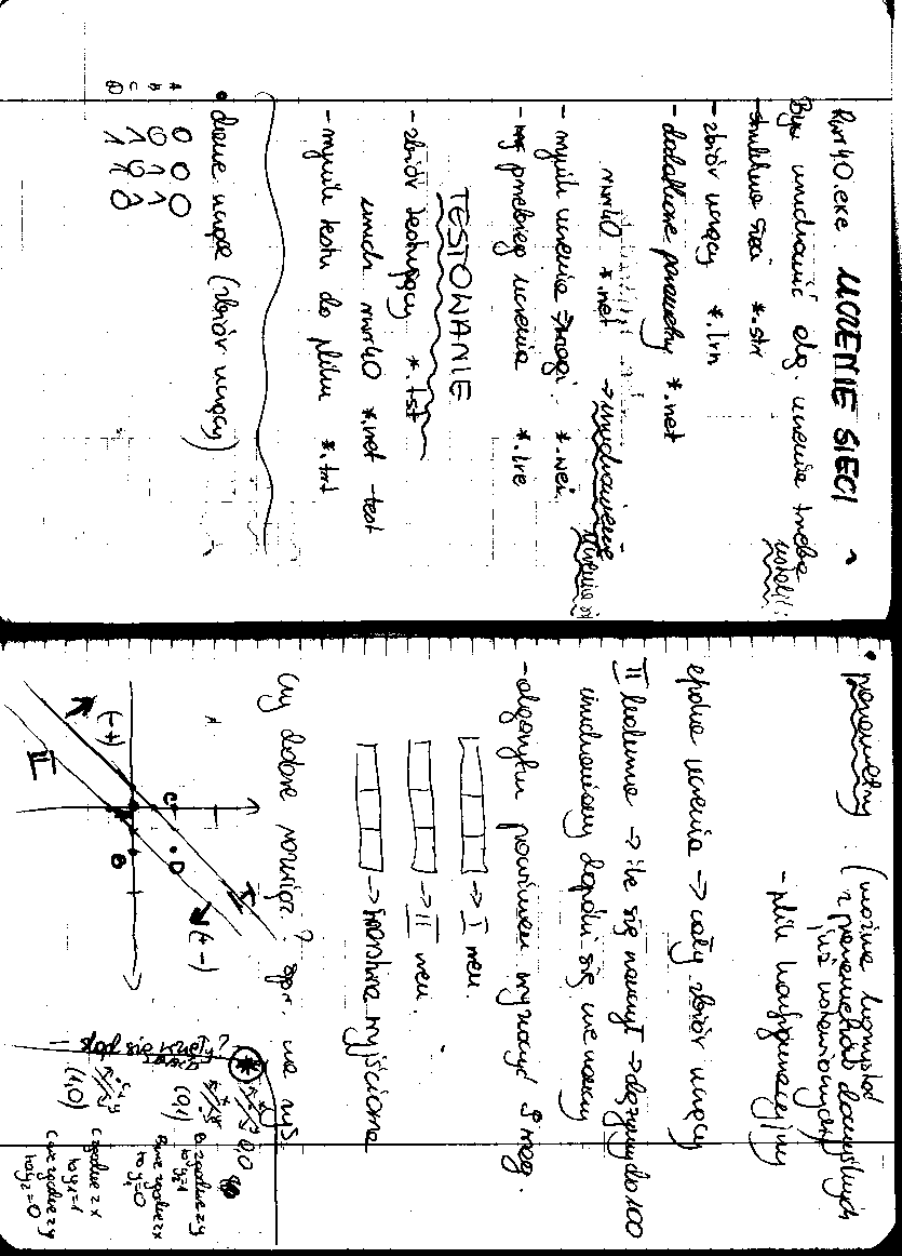 Rwr40.exe UCZENIE SIECI
By uruchomić alg. uczenia trzeba
ustalić:
- struktura sieci *.str
- zbiór uczący *.lrn
- dodatkowe parametry *.net
rwr40 *.net → uruchomienie
uczenia
- wyniki uczenia → wagi. *.wei.
- przebieg uczenia *.lre
TESTOWANIE
- zbiór testujący *.tst
uruch rwr40 *.net -test
- wyniki testu do pliku
• dane uczące (zbiór uczący)
A 0 0 0
B 0 1 1
C 1 0 1
D 1 1 0
• parametry : (można
z parametrów domyślnych
już ustawionych)
- plik konfiguracyjny
epoka uczenia → cały zbiór uczący
II kolumna → ile się nauczył → dążymy do 100
uruchamiamy dopóki się nie nauczy
- algorytm powinien wyznaczyć 9 wag.
→ I neu.
→ II neu.
→ warstwa wyjściowa
Czy dobre rozwiąz? spr. na rys
(-+)
II
C
D
B
I
(+-)
skąd się wzięły?
0,0
(0,1)
B zgodne z y
to y₂=1
B nie zgodne z x
to y₁=0
(1,0)
C zgodne z x
to y₁=1
C nie zgodne z y
to y₂=0